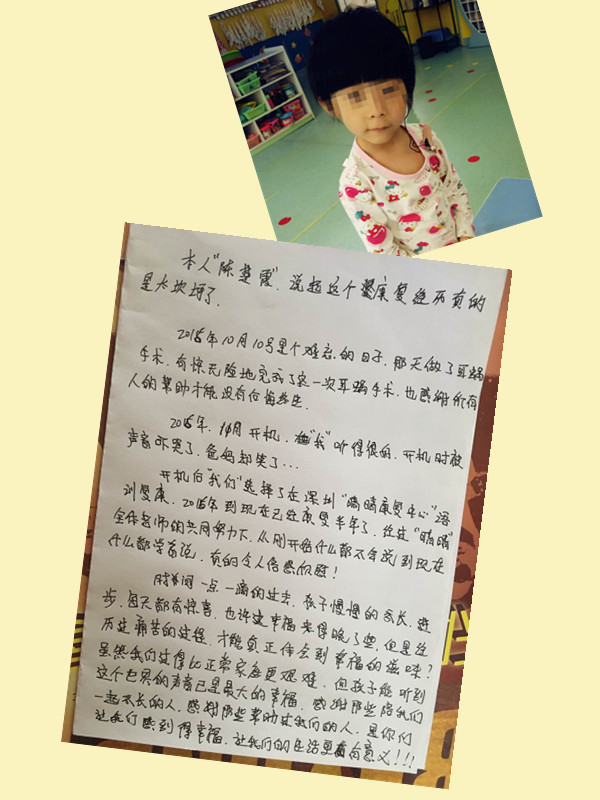 本人"陈楚霞",说起这个康复经历真的
是太坎坷了.
2015年10月10号是个难忘的日子,那天做了耳蜗
手术.有惊无险地完成了这一次耳蜗手术.也感谢所有
人的帮助才能没有后悔发生.
2015年.11月开机,"我"听得很好,开机时被
声音吓哭了,爸妈却笑了...
开机后"我们"选择了在深圳"晴晴康复中心"语
训复康.2015年到现在已经康复半年了,经过"晴晴"
全体老师的共同努力下.从刚开始什么都不会说到现在
什么都学着说,真的令人倍感欣慰!
时间一点一滴的过去,孩子慢慢的成长,进
步,每天都有惊喜,也许这幸福来得晚了些,但是经
历过痛苦的过程,才能真正体会到幸福的滋味?
虽然我们过得比正常家庭更艰难,但孩子能听到
这个世界的声音已是最大的幸福,感谢那些陪我们
一起成长的人,感谢那些帮助过我们的人,是你们
让我们感到得幸福,让我们的生活更有意义!!!